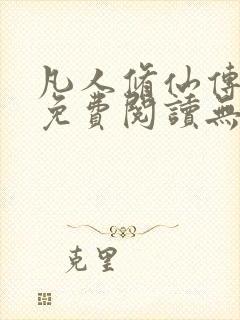 凡人脩仙傳
免費閱讀無
克里